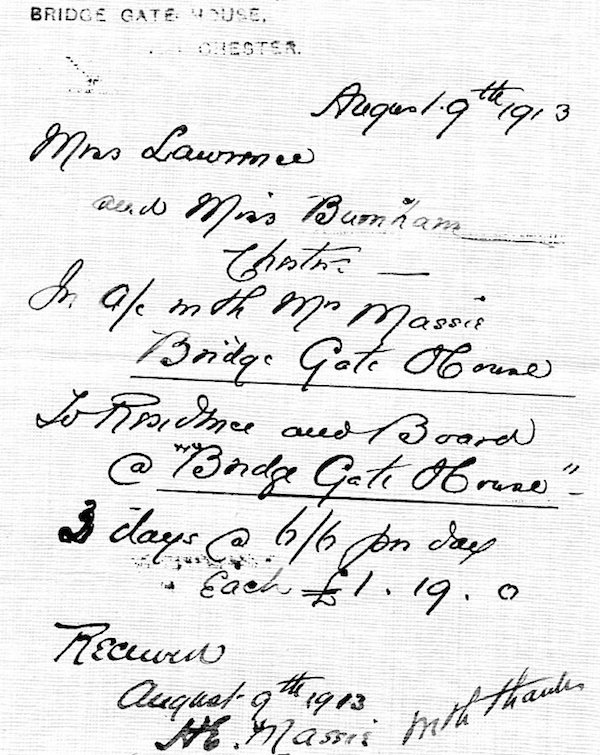 BRIDGE GATE HOUSE,
CHESTER.
August 9th 1913
Miss Lawrence
and Miss Burnham
Chester
In a/c with Mrs Massie
Bridge Gate House
To Residence and Board
@ "Bridge Gate House"
3 days @ 6/6 per day
Each £1. 19. 0
Received
August 9th 1913
H.E. Massie with thanks